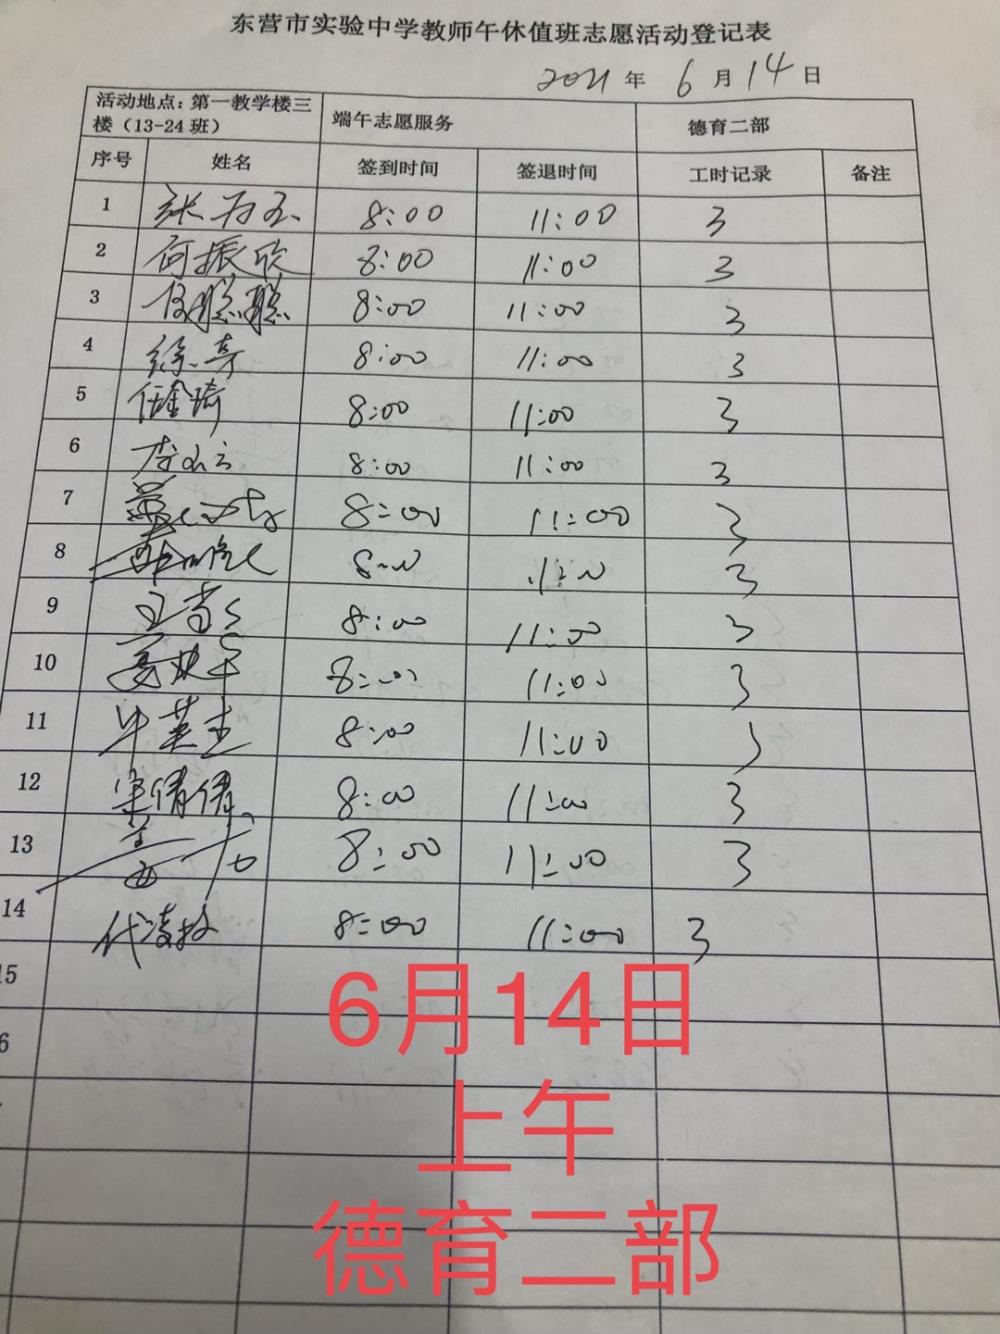 东营市实验中学教师午休值班志愿活动登记表
2021年6月14日
活动地点：第一教学楼三楼（13-24班） 端午志愿服务 德育二部
序号 姓名 签到时间 签退时间 工时记录 备注
1 8:00 11:00 3
2 何振欣 8:00 11:00 3
3 聪聪 8:00 11:00 3
4 徐 8:00 11:00 3
5 任金琦 8:00 11:00 3
6 李 8:00 11:00 3
7 8:00 11:00 3
8 8:00 11:00 3
9 8:00 11:00 3
10 8:00 11:00 3
11 牛英杰 8:00 11:00 3
12 倩倩 8:00 11:00 3
13 8:00 11:00 3
14 代凌 8:00 11:00 3
15
6
6月14日
上午
德育二部